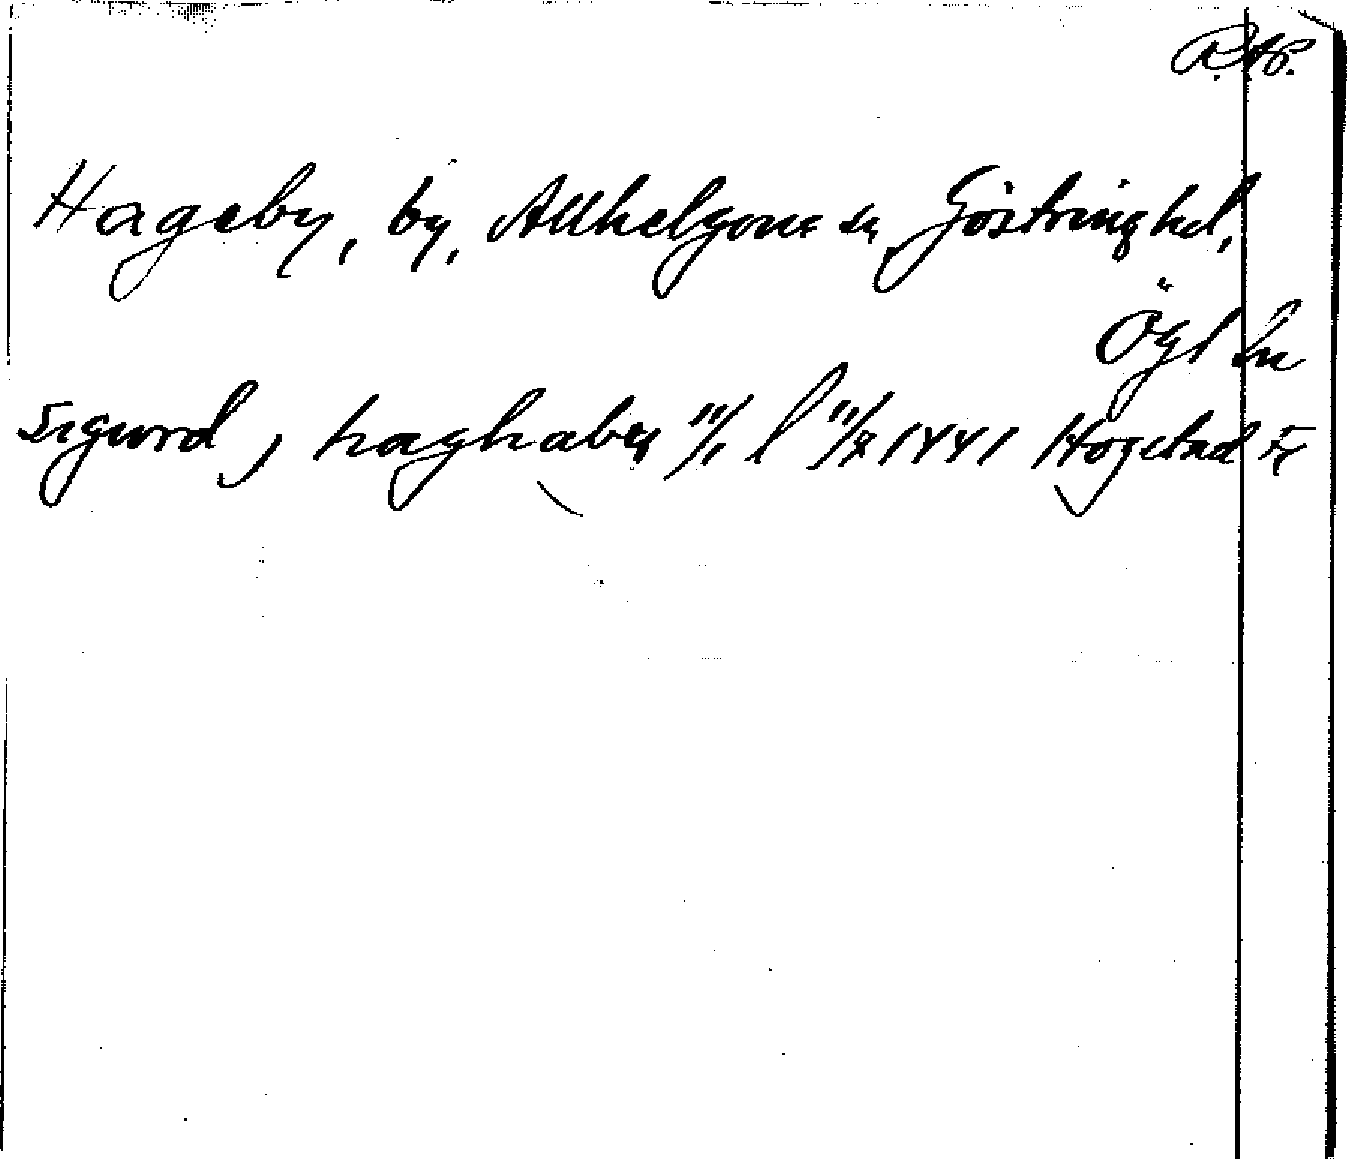 R.Ap.
Hageby, by, Allhelgona sn, Göstring hd,
Ögl ln
Sigurd j haghaby 11/1 l 11/8 1441 Hogstad